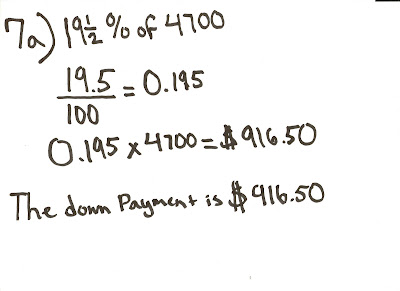 7a) 19½% of 4700
19.5
100
= 0.195
0.195 x 4700 = $916.50
The down Payment is $916.50